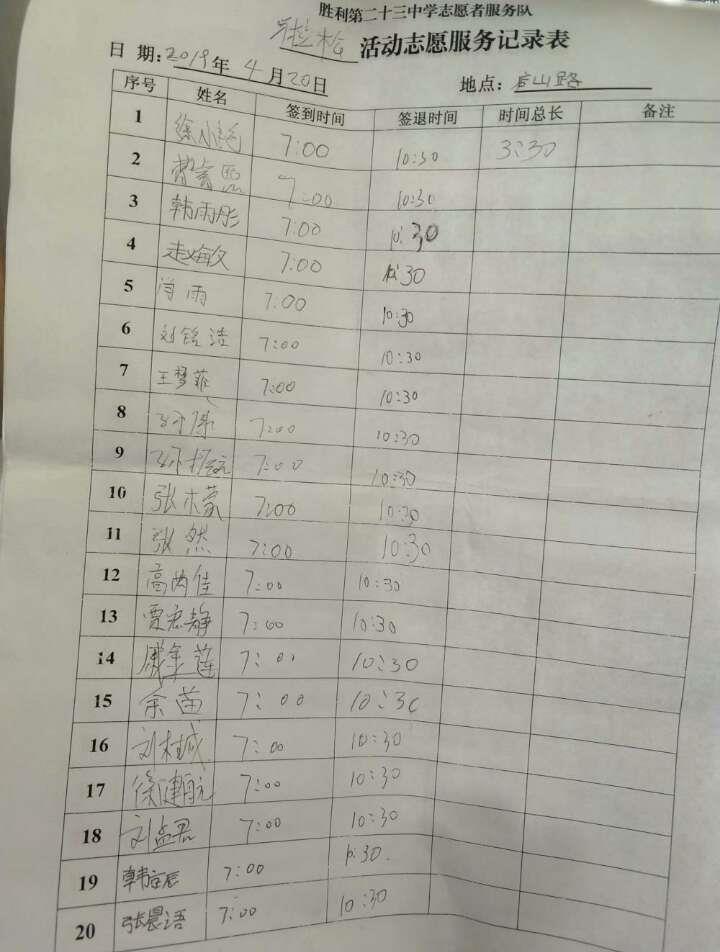 胜利第二十三中学志愿者服务队
活动志愿服务记录表
日 期: 2019 年 4 月 20 日 地点: 山路
序号 姓名 签到时间 签退时间 时间总长 备注
1 徐小 7:00 10:30 3:30
2 7:00 10:30
3 韩雨彤 7:00 10:30
4 赵海文 7:00 10:30
5 肖雨 7:00 10:30
6 刘铭洁 7:00 10:30
7 王梦菲 7:00 10:30
8 孙康 7:00 10:30
9 孙 7:00 10:30
10 张木蒙 7:00 10:30
11 张然 7:00 10:30
12 高尚佳 7:00 10:30
13 贾宏静 7:00 10:30
14 莲 7:00 10:30
15 余苗 7:00 10:30
16 刘桂城 7:00 10:30
17 徐健航 7:00 10:30
18 刘孟君 7:00 10:30
19 韩宗辰 7:00 10:30
20 张晨语 7:00 10:30